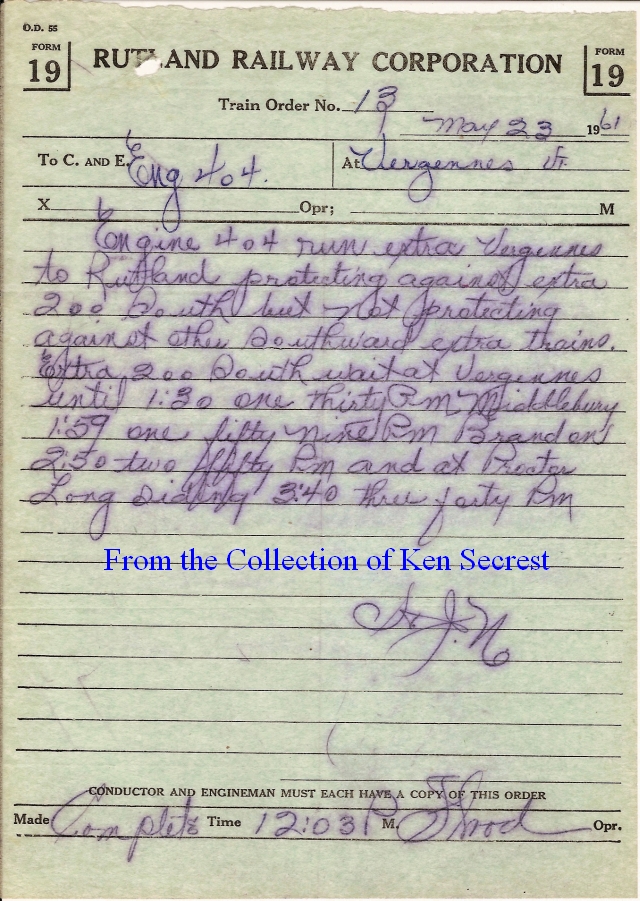 O.D. 55
FORM 19 RUTLAND RAILWAY CORPORATION FORM 19
Train Order No. 13
May 23 1961
To C. AND E. Eng 404. At Vergennes Vt.
X Opr; M
Engine 404 run extra Vergennes
to Rutland protecting against extra
200 South but not protecting
against other Southward extra trains.
Extra 200 South wait at Vergennes
until 1:30 one thirty Pm Middlebury
1:59 one fifty nine Pm Brandon
2:50 two fifty Pm and at Proctor
Long siding 3:40 three forty Pm
From the Collection of Ken Secrest
CONDUCTOR AND ENGINEMAN MUST EACH HAVE A COPY OF THIS ORDER
Made Complete Time 12:03 P M. Opr.